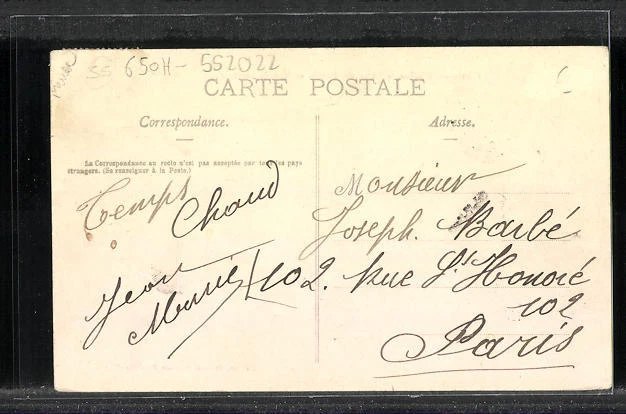 650H - 552022
CARTE POSTALE
Correspondance.
La Correspondance au recto n'est pas acceptée par tous les pays
étrangers. (Se renseigner à la Poste.)
Temps
Chaud
Jean
Marie
Adresse.
Monsieur
Joseph. Barbé
102. Rue St Honoré
102
Paris